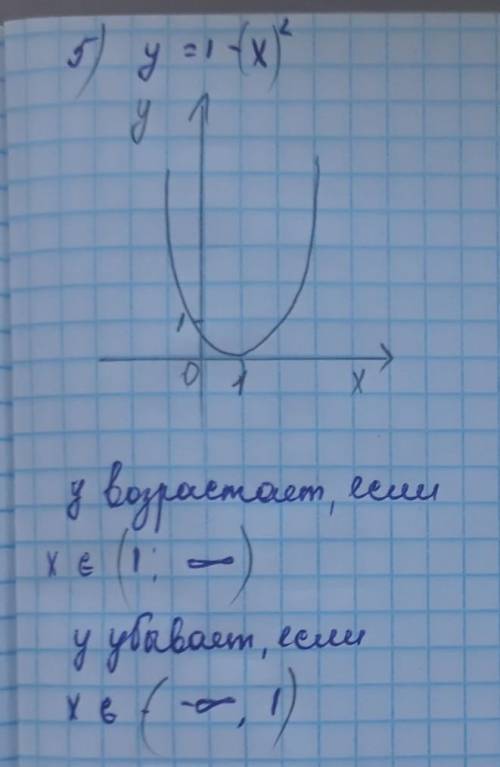 5) y = 1 - (x)²
y
1
0 1 x
y возрастает, если
x ∈ (1; ∞)
y убывает, если
x ∈ (-∞, 1)